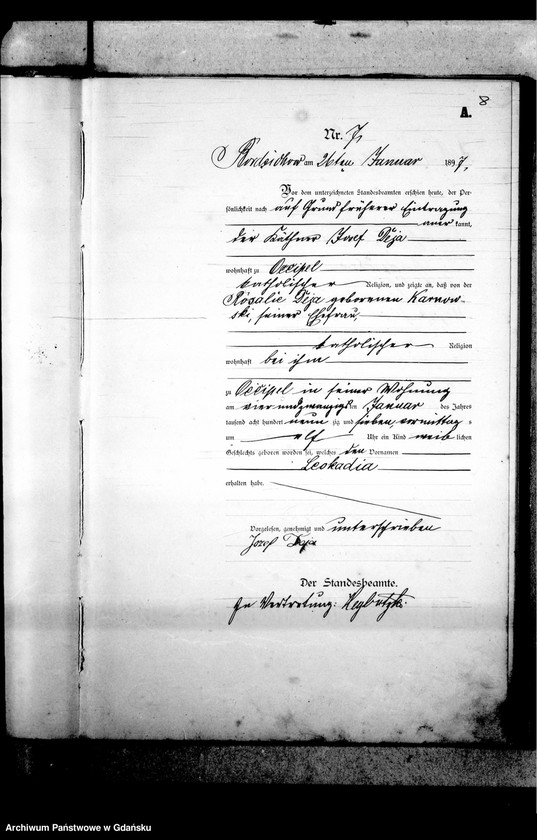 8
A.
Nr. 7,
Bordzichow am 26ten Januar 1897,
Vor dem unterzeichneten Standesbeamten erschien heute, der Per-
sönlichkeit nach auf Grund früherer Eintragung
aner kannt,
der Käthner Josef Deja
wohnhaft zu Occipel
katholischer Religion, und zeigte an, daß von der
Rosalie Deja geborenen Karnow-
ski, seiner Ehefrau,
katholischer Religion
wohnhaft bei ihm
zu Occipel in seiner Wohnung
am vier und zwanzigsten Januar des Jahres
tausend acht hundert neun zig und sieben, vormittag s
um elf Uhr ein Kind weib lichen
Geschlechts geboren worden sei, welches den Vornamen
Leokadia
erhalten habe.
Vorgelesen, genehmigt und unterschrieben
Jozef Deja
Der Standesbeamte.
In Vertretung:
Archiwum Państwowe w Gdańsku